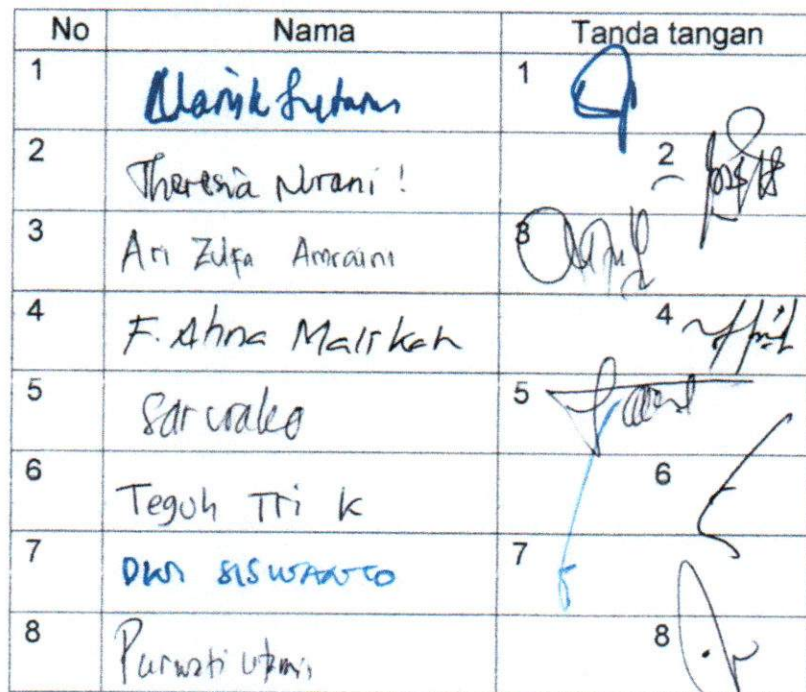 No Nama Tanda tangan
1 Manik Sutaris 1
2 Theresia Nurani ! 2
3 Ari Zulfa Amraini 3
4 F. Ahna Malikah 4
5 Sarwako 5
6 Teguh Tri K 6
7 DWI SISWANTO 7
8 Purwati Utami 8